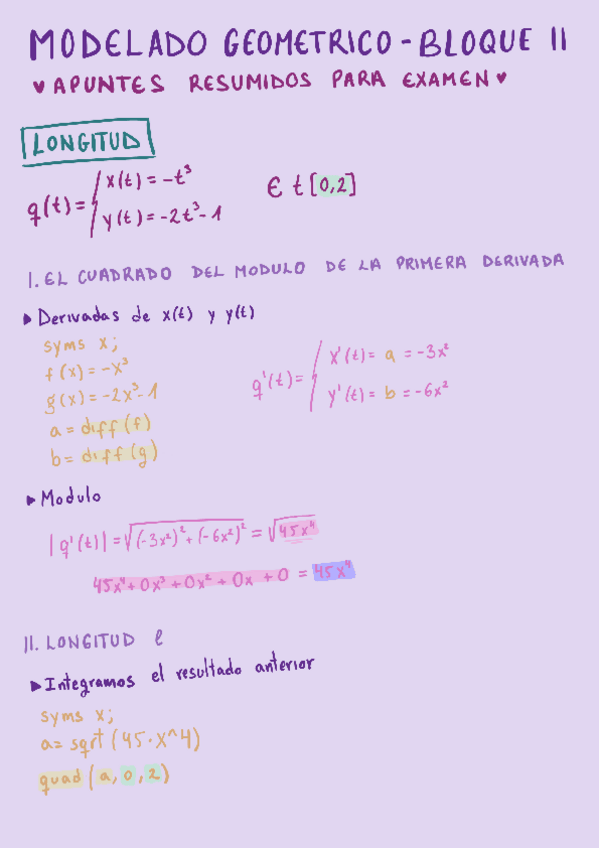 MODELADO GEOMETRICO - BLOQUE II
♥ APUNTES RESUMIDOS PARA EXAMEN ♥
LONGITUD
q(t) = { x(t) = -t³
y(t) = -2t³-1
∈ t [0,2]
I. EL CUADRADO DEL MODULO DE LA PRIMERA DERIVADA
▸ Derivadas de x(t) y y(t)
syms x;
f(x) = -x³
g(x) = -2x³-1
a = diff(f)
b = diff(g)
q'(t) = { x'(t) = a = -3x²
y'(t) = b = -6x²
▸ Modulo
|q'(t)| = √(-3x²)² + (-6x²)² = √45x⁴
45x⁴ + 0x³ + 0x² + 0x + 0 = 45x⁴
II. LONGITUD ℓ
▸ Integramos el resultado anterior
syms x;
a = sqrt (45·x^4)
quad (a, 0, 2)